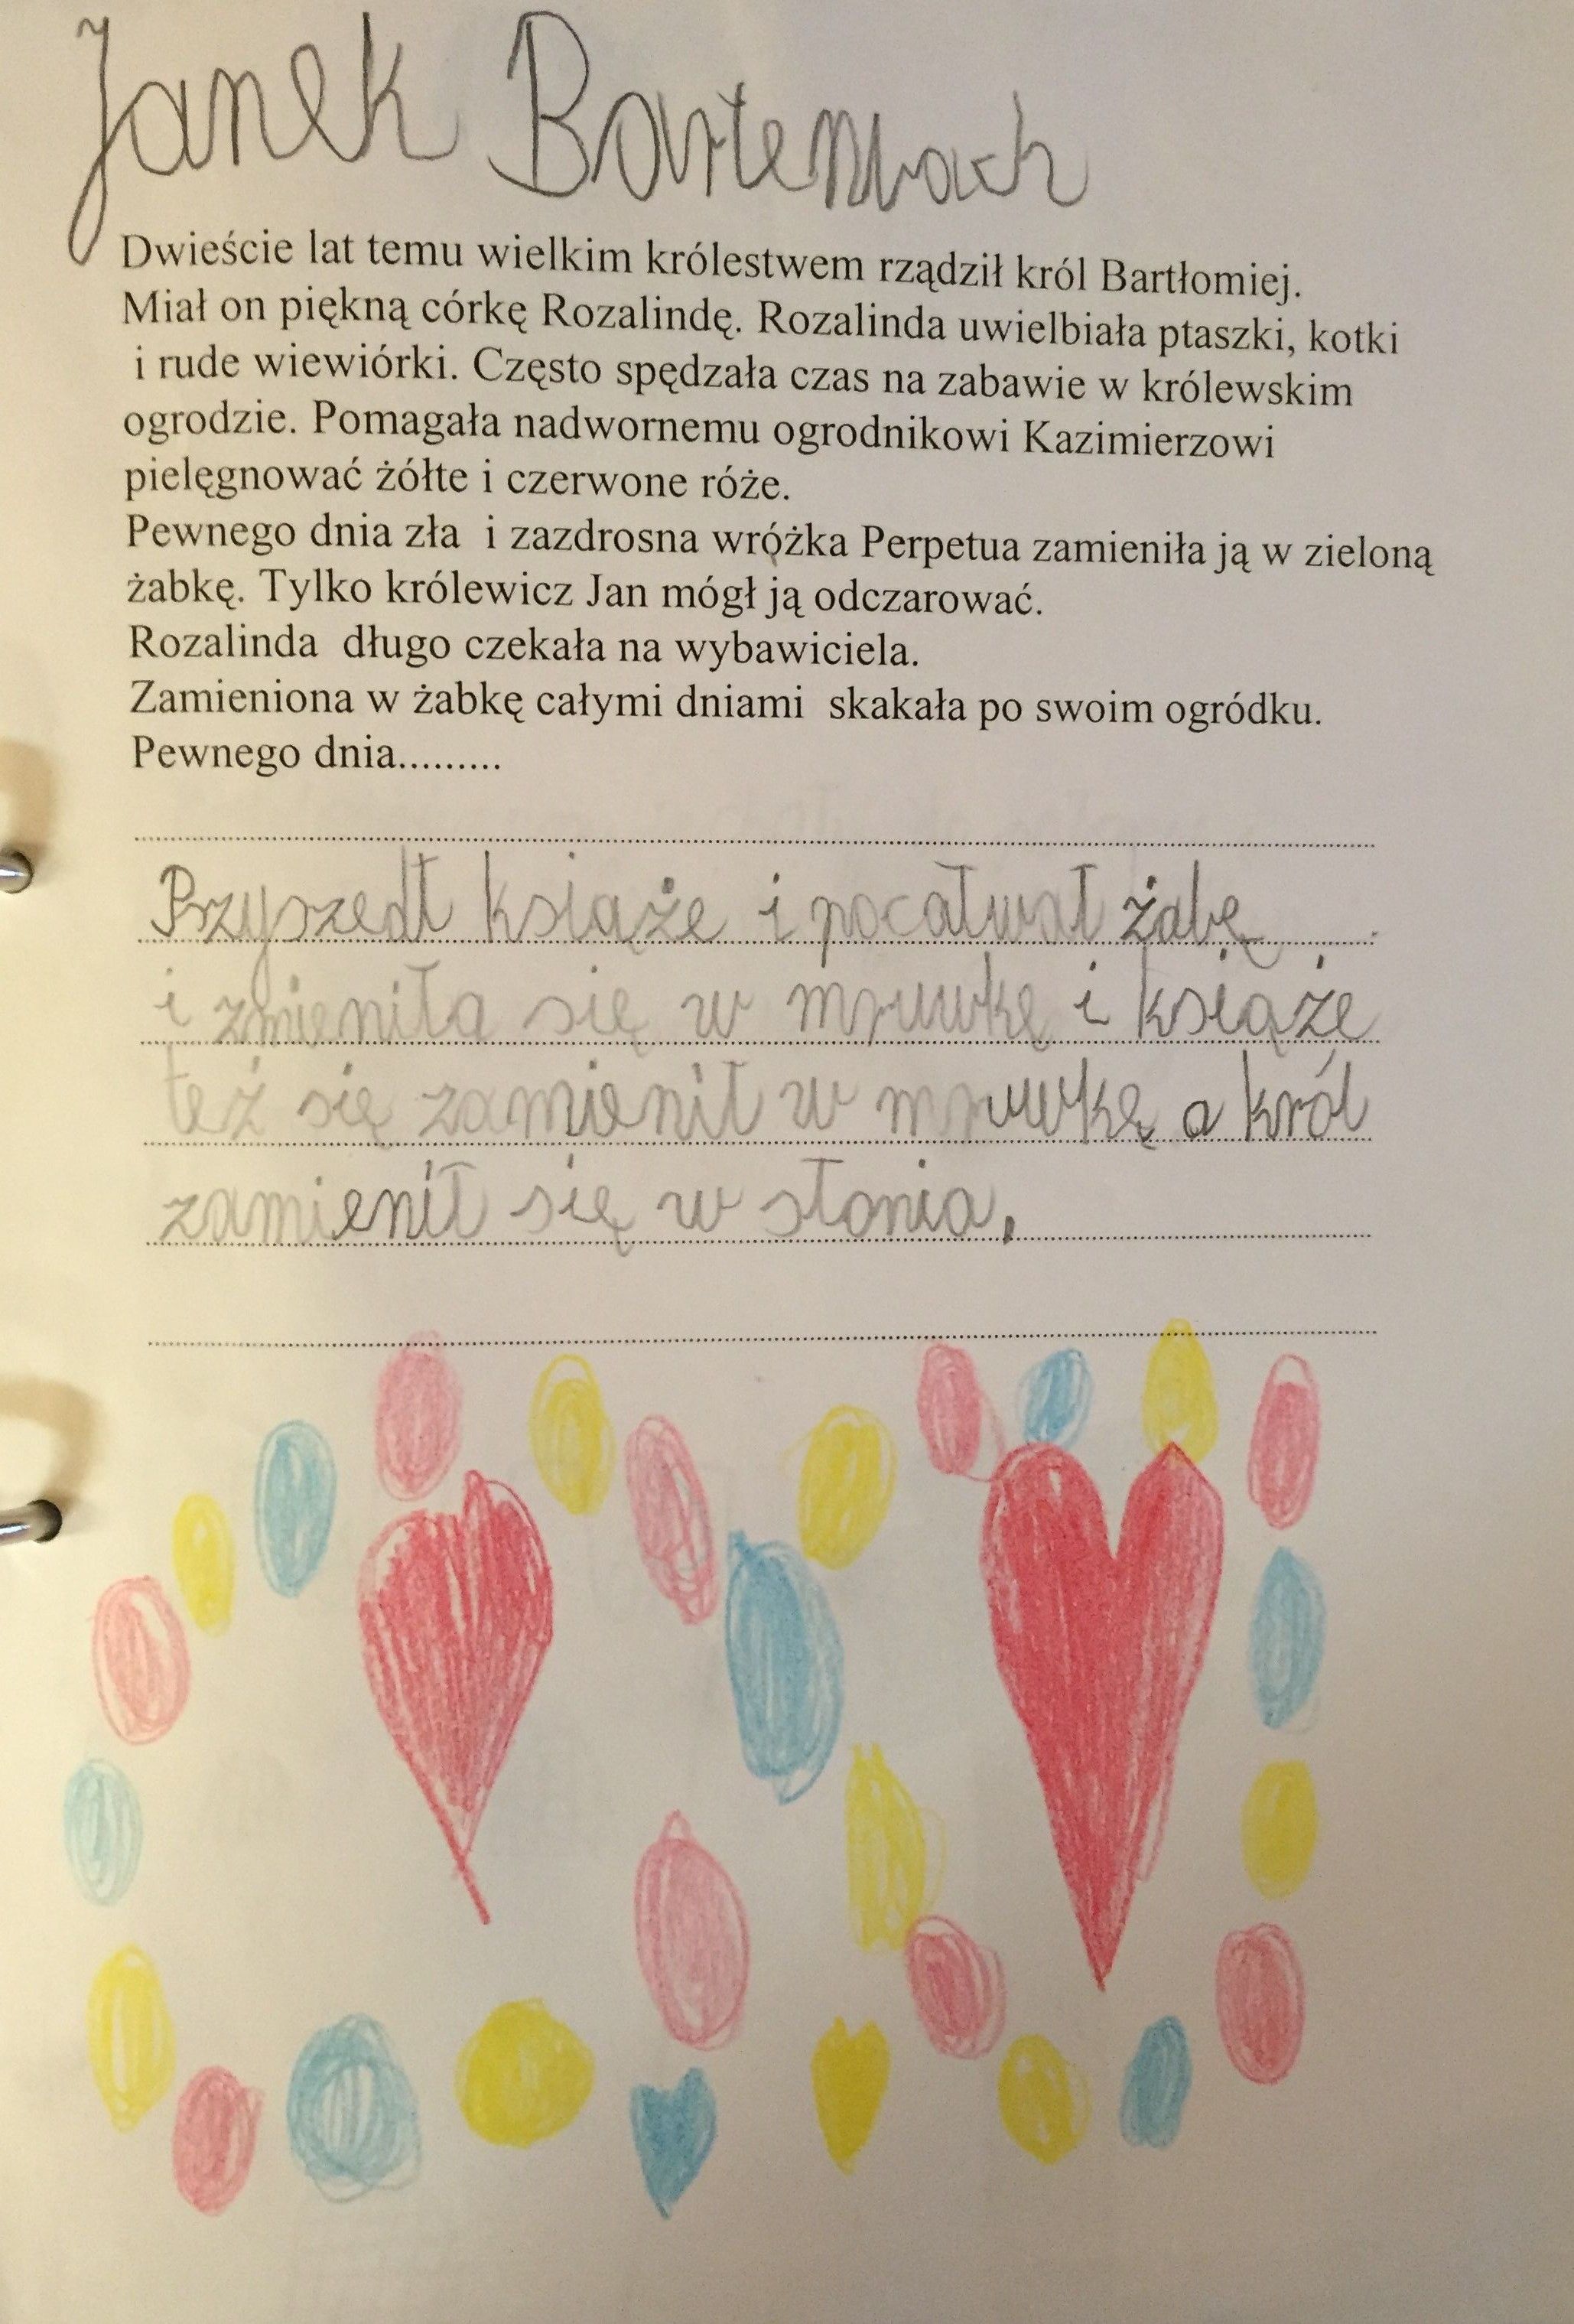 Janek Bartenbach
Dwieście lat temu wielkim królestwem rządził król Bartłomiej.
Miał on piękną córkę Rozalindę. Rozalinda uwielbiała ptaszki, kotki
i rude wiewiórki. Często spędzała czas na zabawie w królewskim
ogrodzie. Pomagała nadwornemu ogrodnikowi Kazimierzowi
pielęgnować żółte i czerwone róże.
Pewnego dnia zła i zazdrosna wróżka Perpetua zamieniła ją w zieloną
żabkę. Tylko królewicz Jan mógł ją odczarować.
Rozalinda długo czekała na wybawiciela.
Zamieniona w żabkę całymi dniami skakała po swoim ogródku.
Pewnego dnia.........
Przyszedł książe i pocałwał żabę
i zmieniła się w mruwkę i książe
też się zamienił w mruwkę a król
zamienił się w słonia.